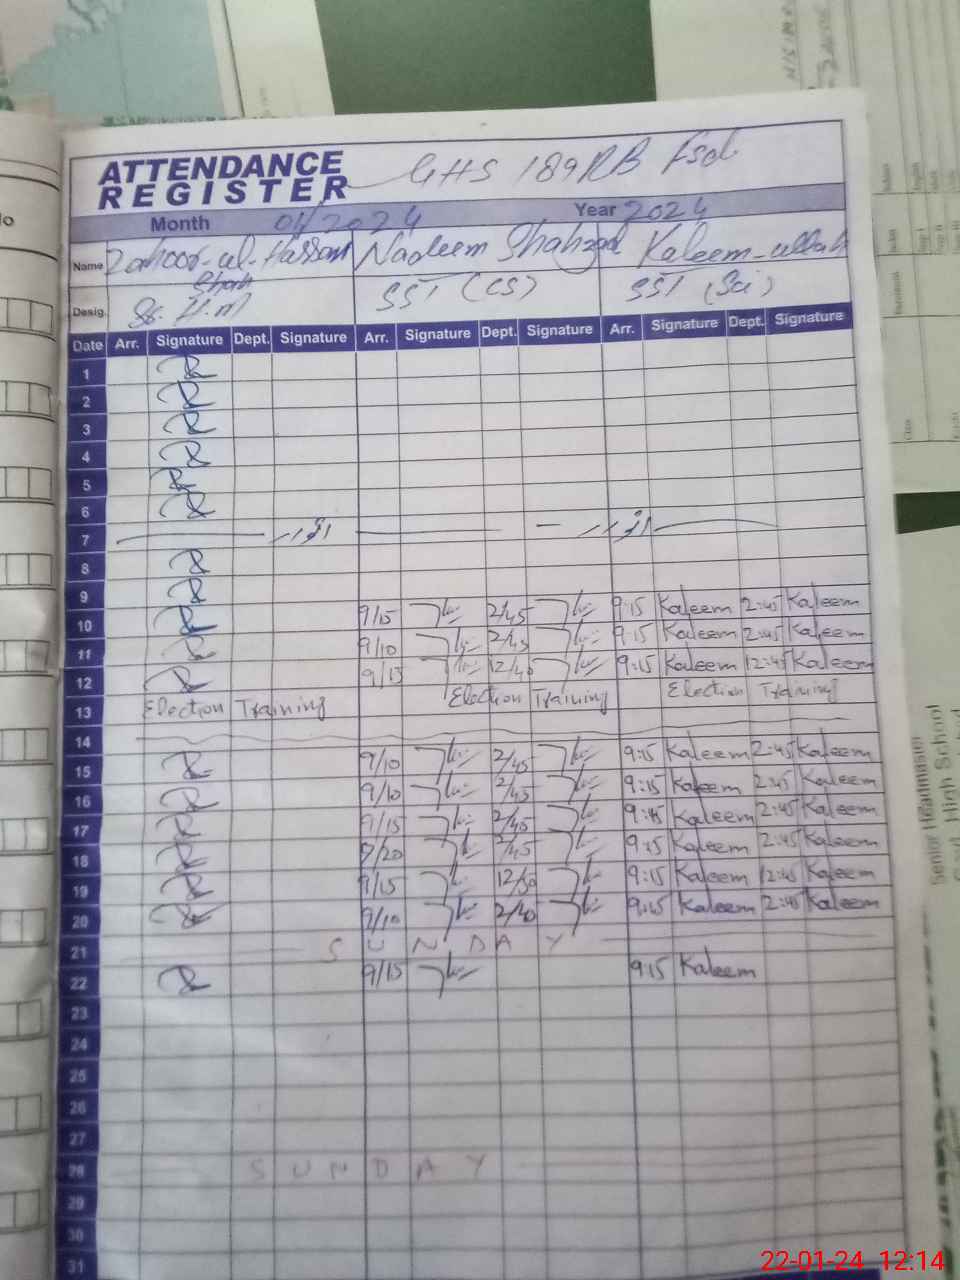 ATTENDANCE
REGISTER
GHS 189RB Fsd
Month 01/2024 Year 2024
Name Zahoor-ul-Hassan Shah Nadeem Shahzad Kaleem-ullah
Desig. Sr. H.M SST (CS) SST (Sci)
Date Arr. Signature Dept. Signature Arr. Signature Dept. Signature Arr. Signature Dept. Signature
1
2
3
4
5
6
7
8
9
10 9/15 2/45 9:15 Kaleem 2:45 Kaleem
11 9/10 2/45 9:15 Kaleem 2:45 Kaleem
12 9/15 12/40 9:15 Kaleem 12:45 Kaleem
13 Election Training Election Training Election Training
14
15 9/10 2/45 9:15 Kaleem 2:45 Kaleem
16 9/10 2/45 9:15 Kaleem 2:45 Kaleem
17 9/15 2/45 9:15 Kaleem 2:45 Kaleem
18 9/20 2/45 9:15 Kaleem 2:45 Kaleem
19 9/15 12/50 9:15 Kaleem 12:45 Kaleem
20 9/10 2/40 9:15 Kaleem 2:45 Kaleem
21 SUNDAY
22 9/15 9:15 Kaleem
23
24
25
26
27
28 SUNDAY
29
30
31
Senior Headmaster
High School
22-01-24 12:14